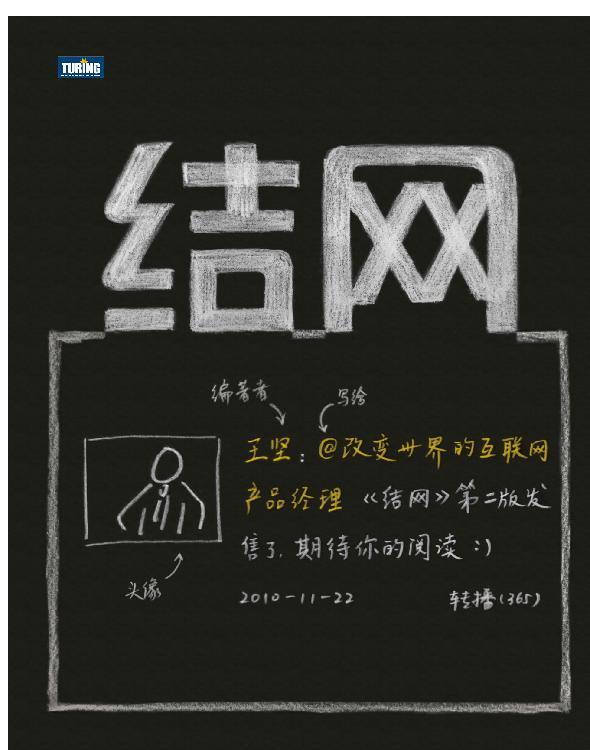 TURING
结网
编著者
写绘
王坚：@改变世界的互联网
产品经理 《结网》第二版发
售了，期待你的阅读 :)
头像
2010-11-22 转播(365)